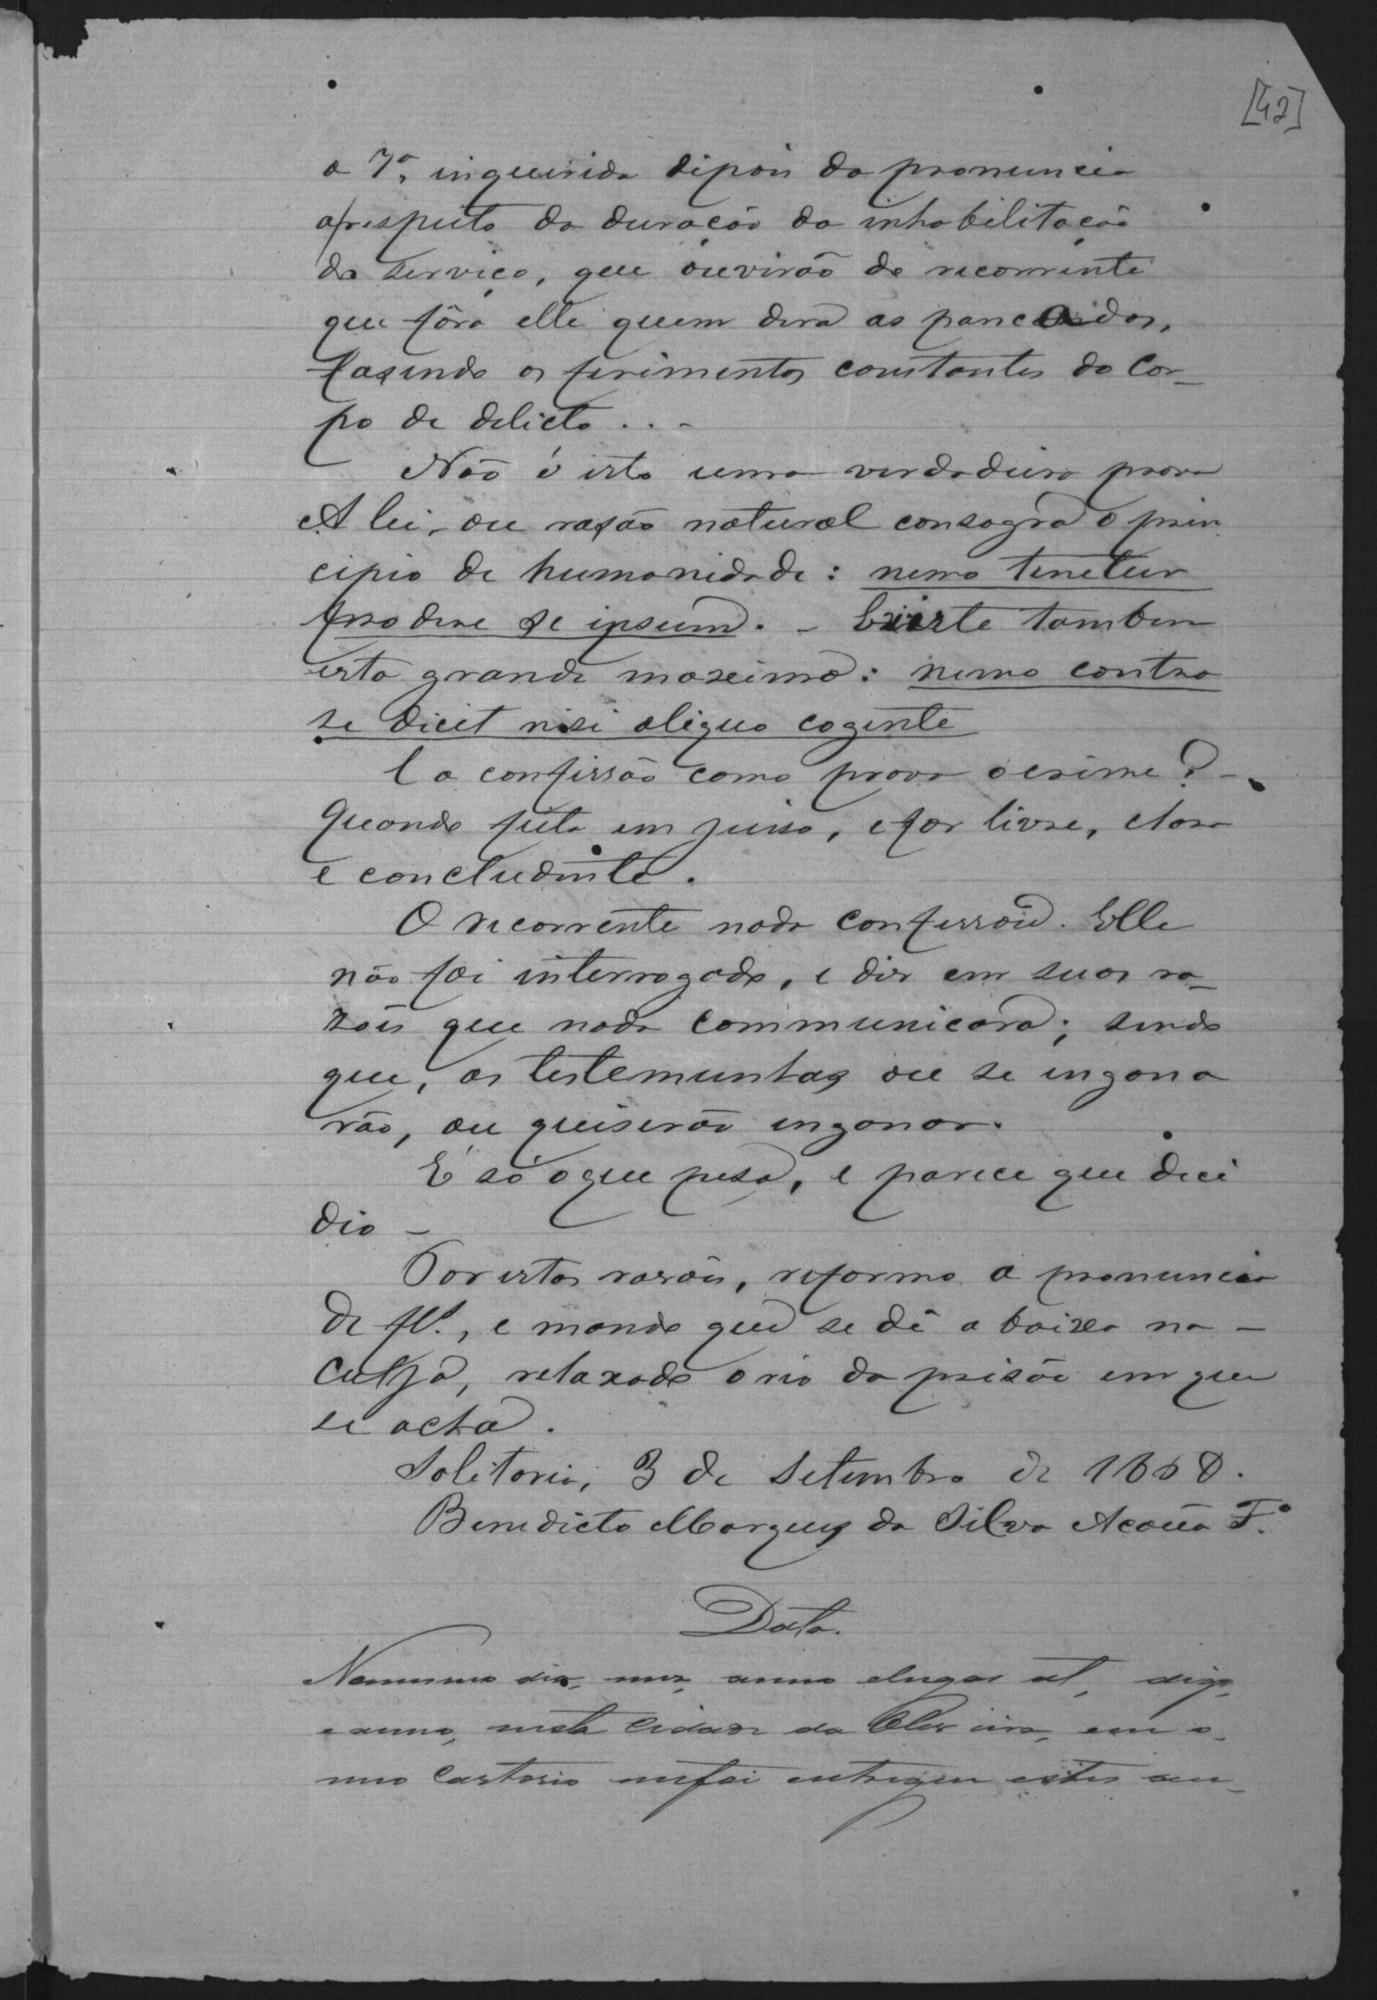 [42]
a 7ª, inquirida dipois da pronuncia
a respeito da duração da inhabilitação
de serviço, que ouvirão do recorrente
que fôra elle quem dera as pancadas,
fasendo os ferimentos constantes do Cor_
po de delicto . . -
Não é isto uma verdadeira prova
A lei, ou rasão natural consagra o prin
cipio de humanidade: nemo tenetur
prodere se ipsum. - Existe tambem
esta grande maxima: nemo contra
se dicit nisi aliquo cogente
E a confissão como prova o crime? -
Quando feita em juiso, e for livre, clara
e concludente.
O recorrente nada confessou. Elle
não foi interrogado, e diz em suas ra_
sões que nada communicara; sendo
que, as testemunhas ou se ingana
rão, ou quiserão inganar.
É só o que pesa, e parece que deci
dio -
Por estas rasões, reformo a pronuncia
de fl., e mando que se dê a baixa na -
Culpa, relaxado o réo da prisão em que
se acha.
Solitario, 3 de Setembro de 1868.
Benedicto Marques da Silva Acauã F.º
Data.
No mesmo dia, mez, anno e lugar at, digo,
e anno, nesta Cidade da em o
meo Cartorio me foi entregue estes au_